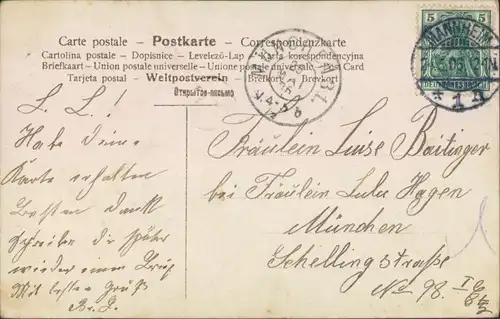 Carte postale - Postkarte - Correspondenzkarte
Cartolina postale - Dopisnice - Levelező-Lap
Briefkaart - Union postale universelle - Unione postale
Tarjeta postal - Weltpostverein - Brefkort - Brevkort
Открытое письмо
5 5
MANNHEIM
* 1
L. L.!
Habe Deine
Karte erhalten
Besten Dank
Schreibe Dir später
wieder einen Brief
Mit besten Gruß
Fräulein Luise Baitinger
bei Fräulein Lulu Hagen
München
Schellingstraße
No. 98. I